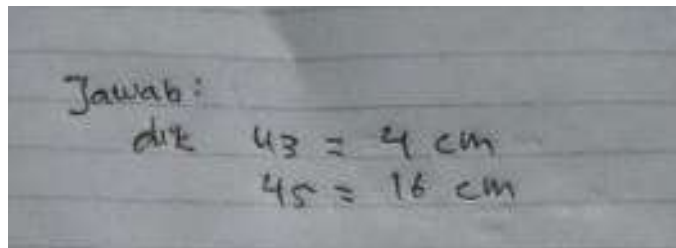 Jawab:
dik U3 = 4 cm
U5 = 16 cm